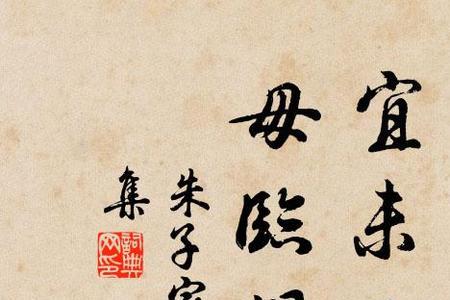 宜未
毋臨
朱子家
集
詞典
网印